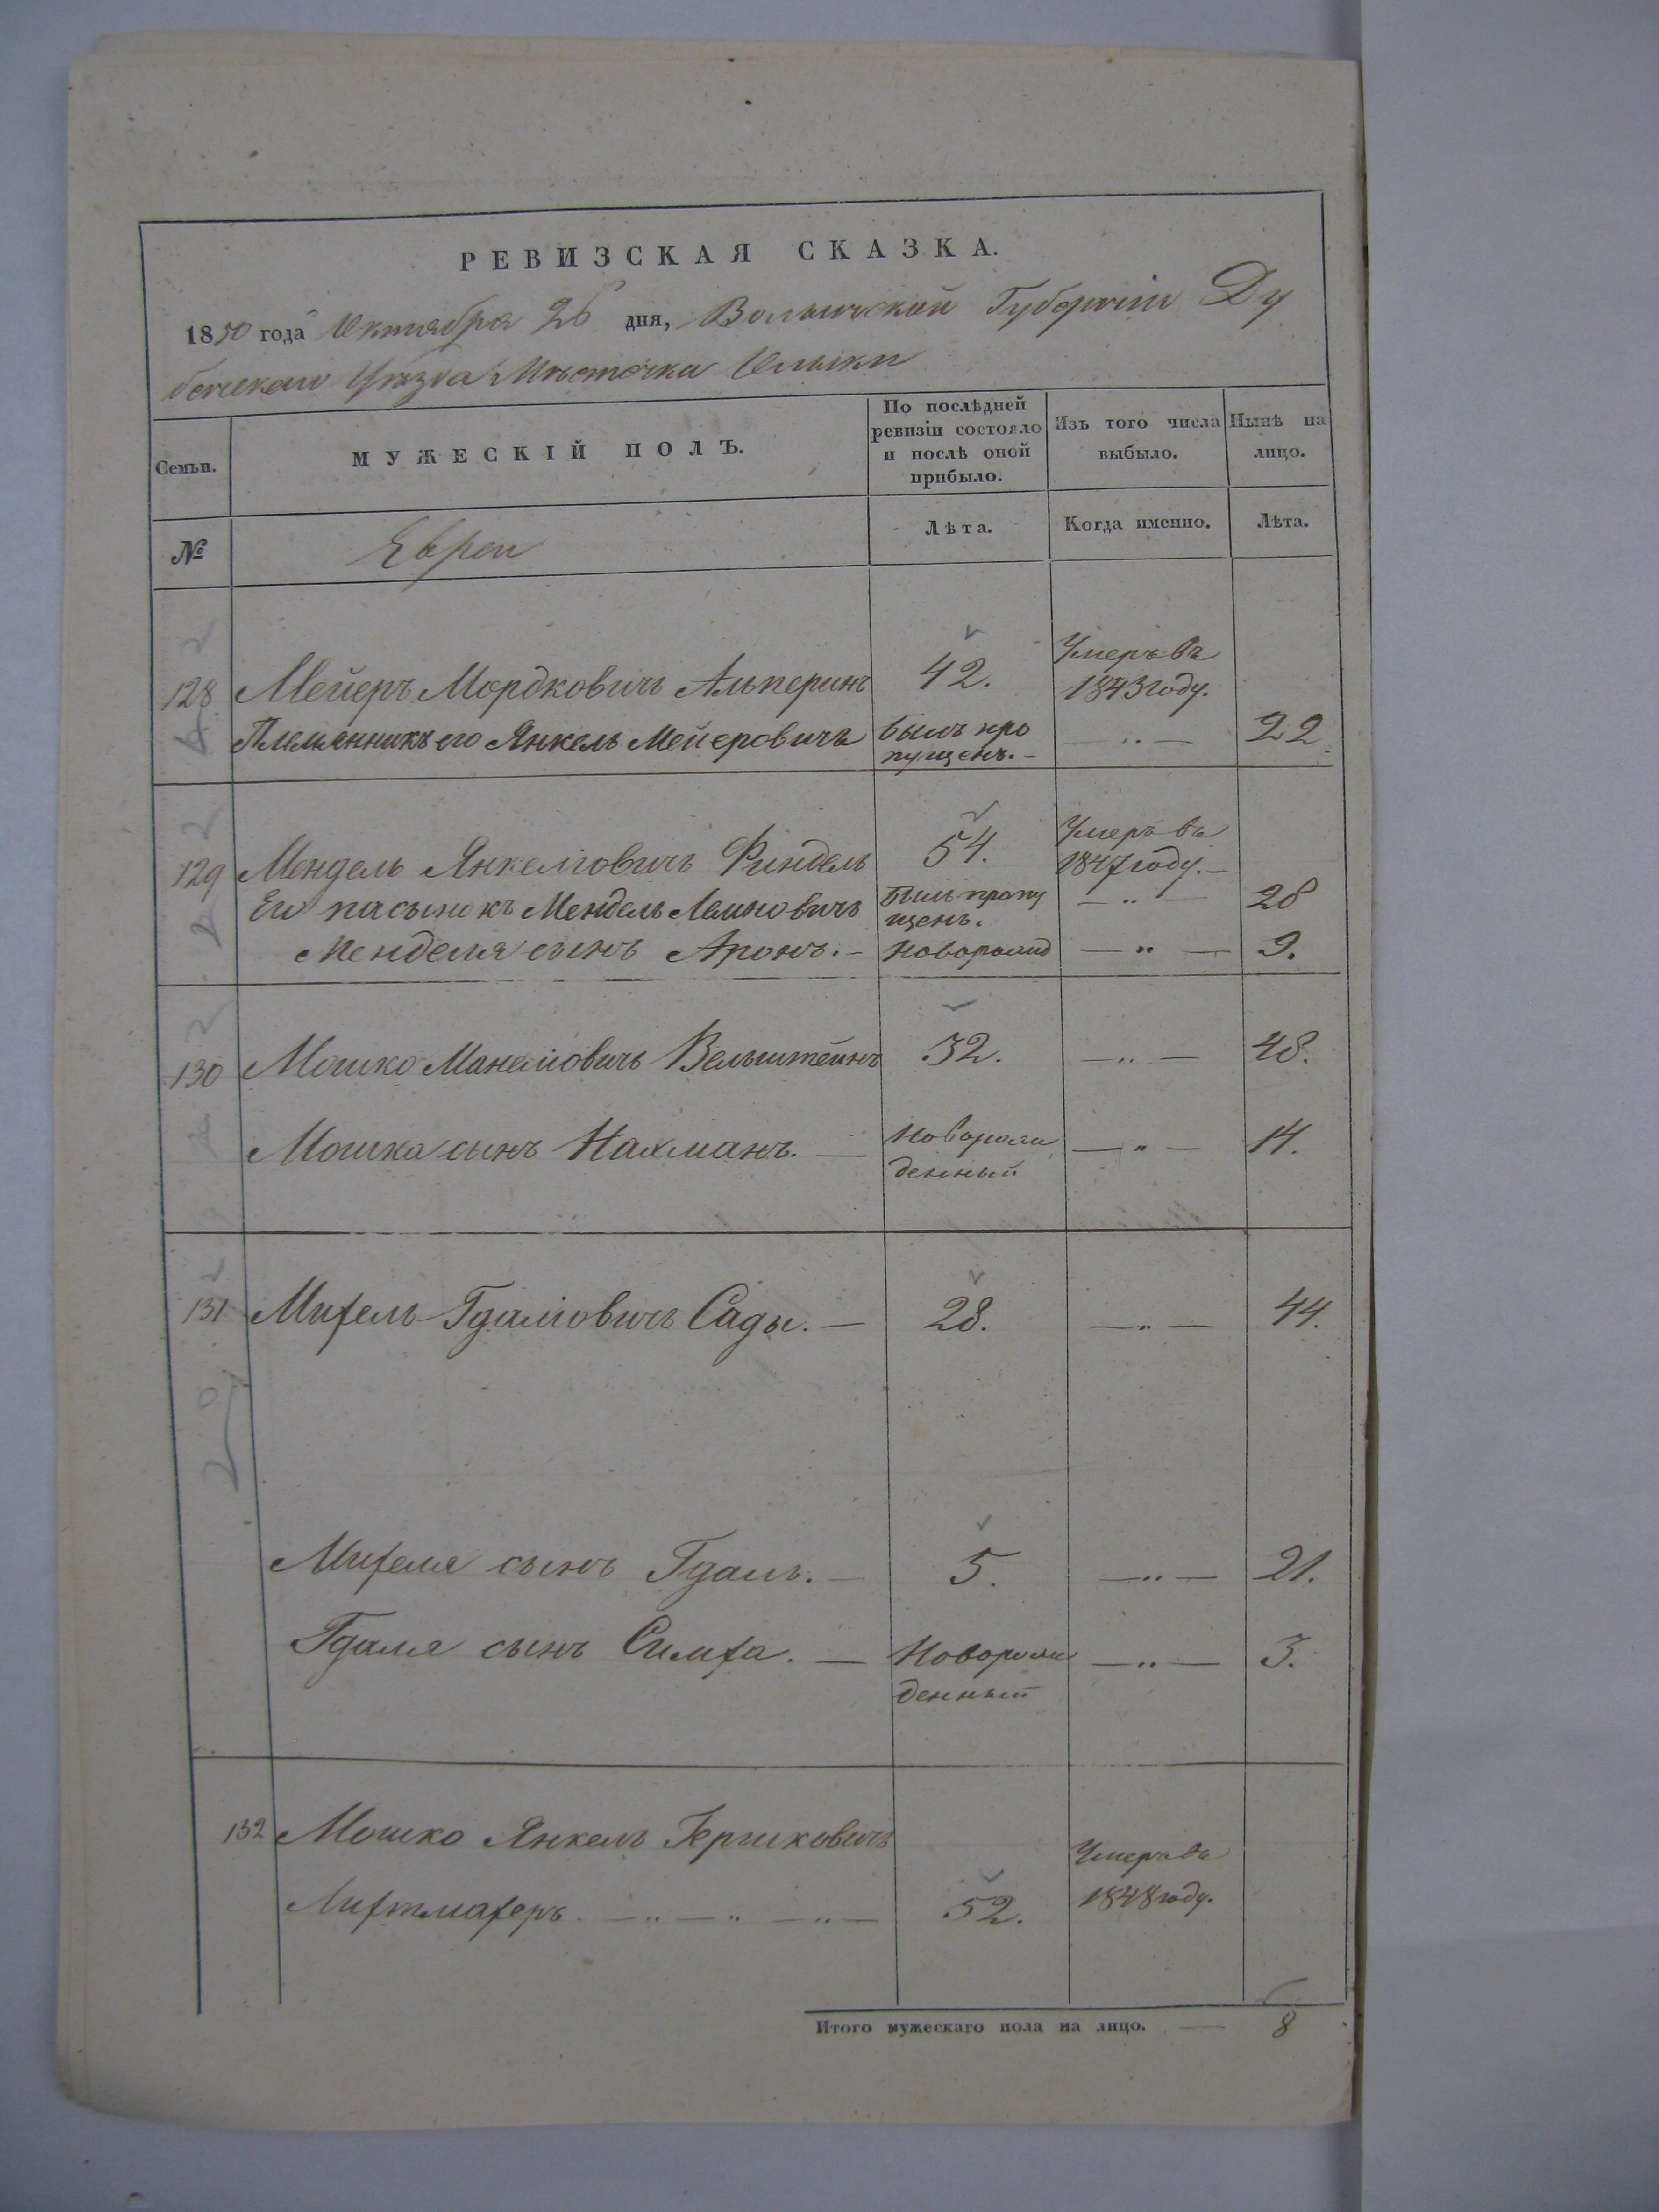 РЕВИЗСКАЯ СКАЗКА.
1850 года Октября 26 дня, Волынской Губерніи Ду
бенскаго Уѣзда Мѣстечка Олыки
Семьи.
МУЖЕСКІЙ ПОЛЪ.
По послѣдней ревизіи состояло и послѣ оной прибыло.
Изъ того числа выбыло.
Нынѣ на лицо.
№
Евреи
Лѣта.
Когда именно.
Лѣта.
128 Мейеръ Мордковичъ Альперинъ 42. Умеръ въ 1843 году.
Племянникъ его Янкель Мейеровичъ былъ про пущенъ. — „ — 22.
129 Мендель Янкеліовичъ Финдель 54. Умеръ въ 1847 году. —
Его пасынокъ Мендель Лейбовичъ Былъ пропу щенъ. — „ — 28
Менделя сынъ Аронъ. — Новорожд — „ — 9.
130 Мошко Манеліовичъ Вельштейнъ 32. — „ — 48.
Мошка сынъ Нахманъ. — Новорож денный — „ — 14.
131 Михель Гдаліовичъ Сады. — 28. — „ — 44.
Михеля сынъ Гдаль. — 5. — „ — 21.
Гдаля сынъ Симха. — Новорож денный — „ — 3.
132 Мошко Янкель Гершковичъ
Лихтмахеръ. — „ — „ — „ — 52. Умеръ въ 1848 году.
Итого мужескаго пола на лицо. — 8